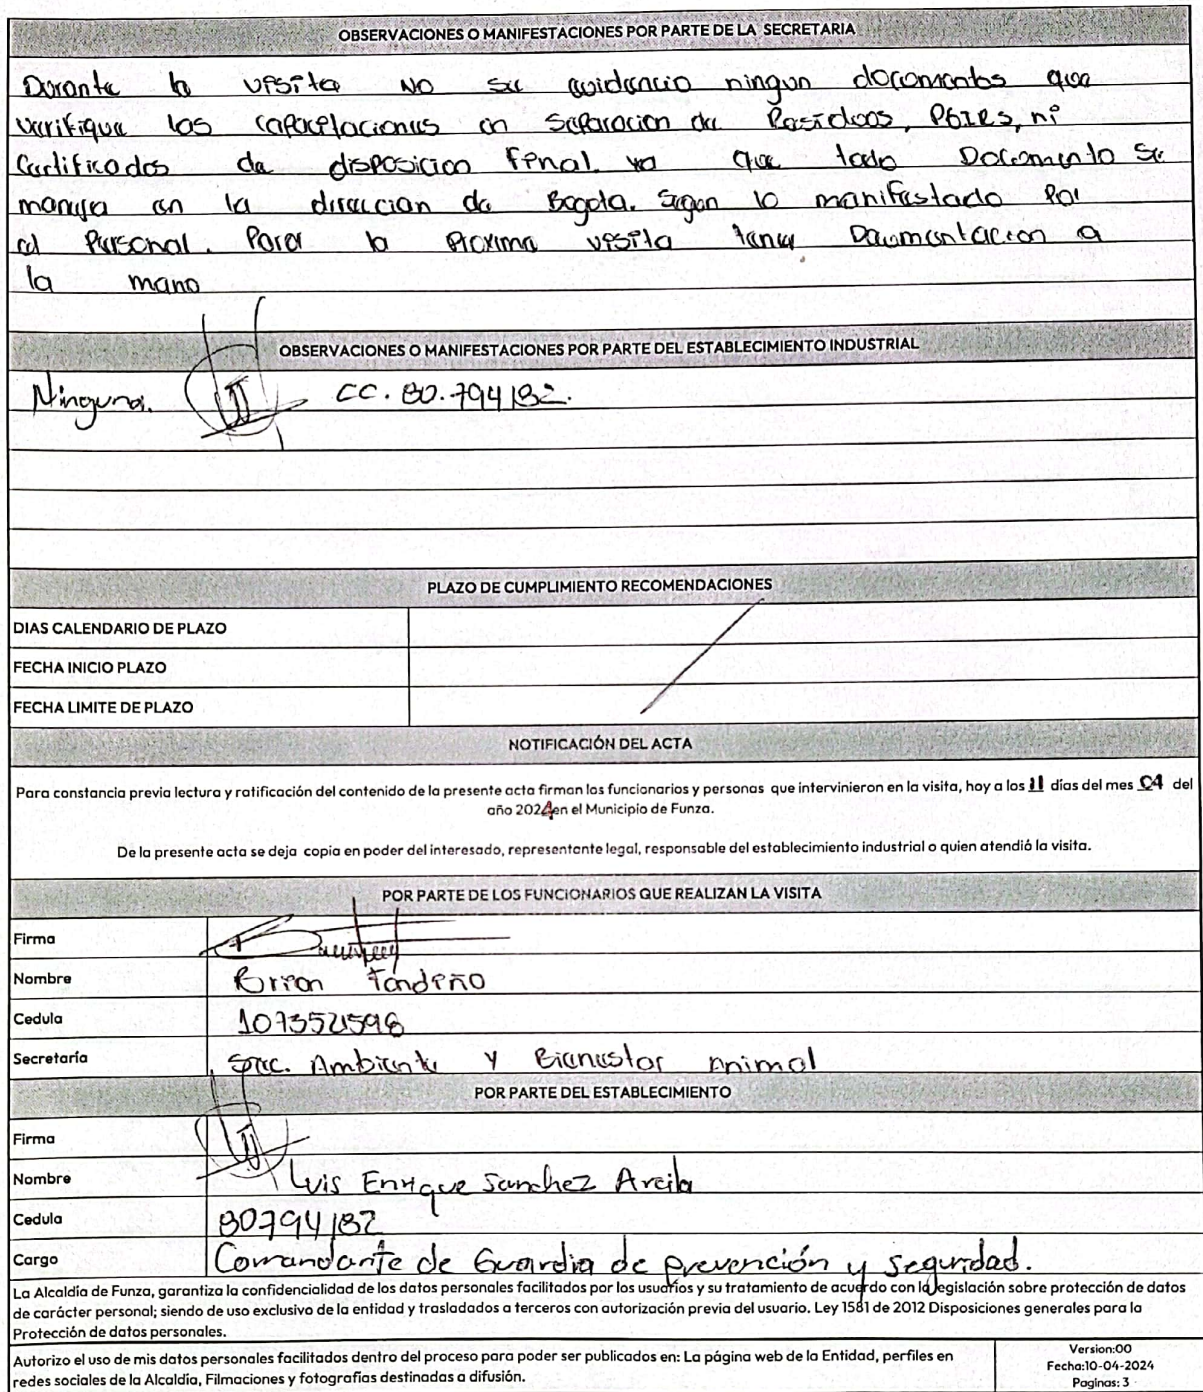 OBSERVACIONES O MANIFESTACIONES POR PARTE DE LA SECRETARIA
Durante la visita NO se evidencio ningun documentos que
verifique las capacitaciones en separacion de Residuos, PGIRS, ni
Certificados de disposicion final. ya que todo Documento se
maneja en la direccion de Bogota. Segun lo manifestado Por
el Personal. Para la Proxima visita tener Documentacion a
la mano
OBSERVACIONES O MANIFESTACIONES POR PARTE DEL ESTABLECIMIENTO INDUSTRIAL
Ninguna. CC. 80.794182.
PLAZO DE CUMPLIMIENTO RECOMENDACIONES
DIAS CALENDARIO DE PLAZO
FECHA INICIO PLAZO
FECHA LIMITE DE PLAZO
NOTIFICACIÓN DEL ACTA
Para constancia previa lectura y ratificación del contenido de la presente acta firman los funcionarios y personas que intervinieron en la visita, hoy a los 11 días del mes 04 del
año 2024 en el Municipio de Funza.
De la presente acta se deja copia en poder del interesado, representante legal, responsable del establecimiento industrial o quien atendió la visita.
POR PARTE DE LOS FUNCIONARIOS QUE REALIZAN LA VISITA
Firma
Nombre Brian Tandiño
Cedula 1073521596
Secretaría Sec. Ambiente y Bienestar Animal
POR PARTE DEL ESTABLECIMIENTO
Firma
Nombre Luis Enrique Sanchez Arcila
Cedula 80794182
Cargo Comandante de Guardia de prevención y seguridad.
La Alcaldía de Funza, garantiza la confidencialidad de los datos personales facilitados por los usuarios y su tratamiento de acuerdo con la legislación sobre protección de datos
de carácter personal; siendo de uso exclusivo de la entidad y trasladados a terceros con autorización previa del usuario. Ley 1581 de 2012 Disposiciones generales para la
Protección de datos personales.
Autorizo el uso de mis datos personales facilitados dentro del proceso para poder ser publicados en: La página web de la Entidad, perfiles en
redes sociales de la Alcaldía, Filmaciones y fotografías destinadas a difusión.
Version:00
Fecha:10-04-2024
Paginas: 3